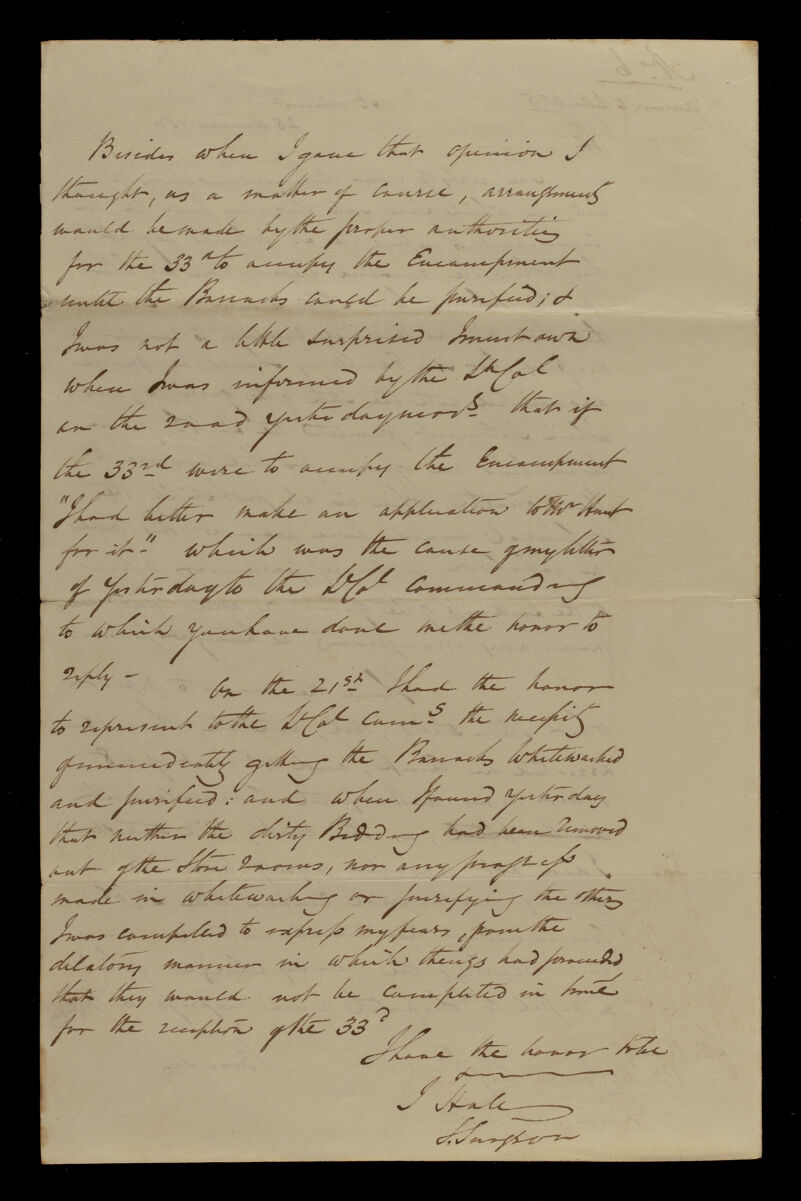 Besides when I gave that opinion I
thought, as a matter of course, arrangements
would be made by the proper authorities
for the 33rd to occupy the Encampment
until the Barracks could be purified; &
I was not a little surprised I must own
when I was informed by the Lt Col
on the road yesterday that if
the 33rd were to occupy the Encampment
"I had better make an application to Mr Hunt
for it" which was the cause of my letter
of yesterday to the Lt Col commanding
to which you have done me the honor to
reply –
On the 21st I had the honor
to represent to the Lt Col Comg the necessity
of immediately getting the Barracks Whitewashed
and purified: and when I found yesterday
that neither the dirty Bedding had been removed
out of the Store rooms, nor any progress
made in whitewashing or purifying the others
I was compelled to express my fears, from the
dilatory manner in which things had proceeded
that they would not be completed in time
for the reception of the 33d
I have the honor to be
&
J Hale
S. Surgeon
No 6